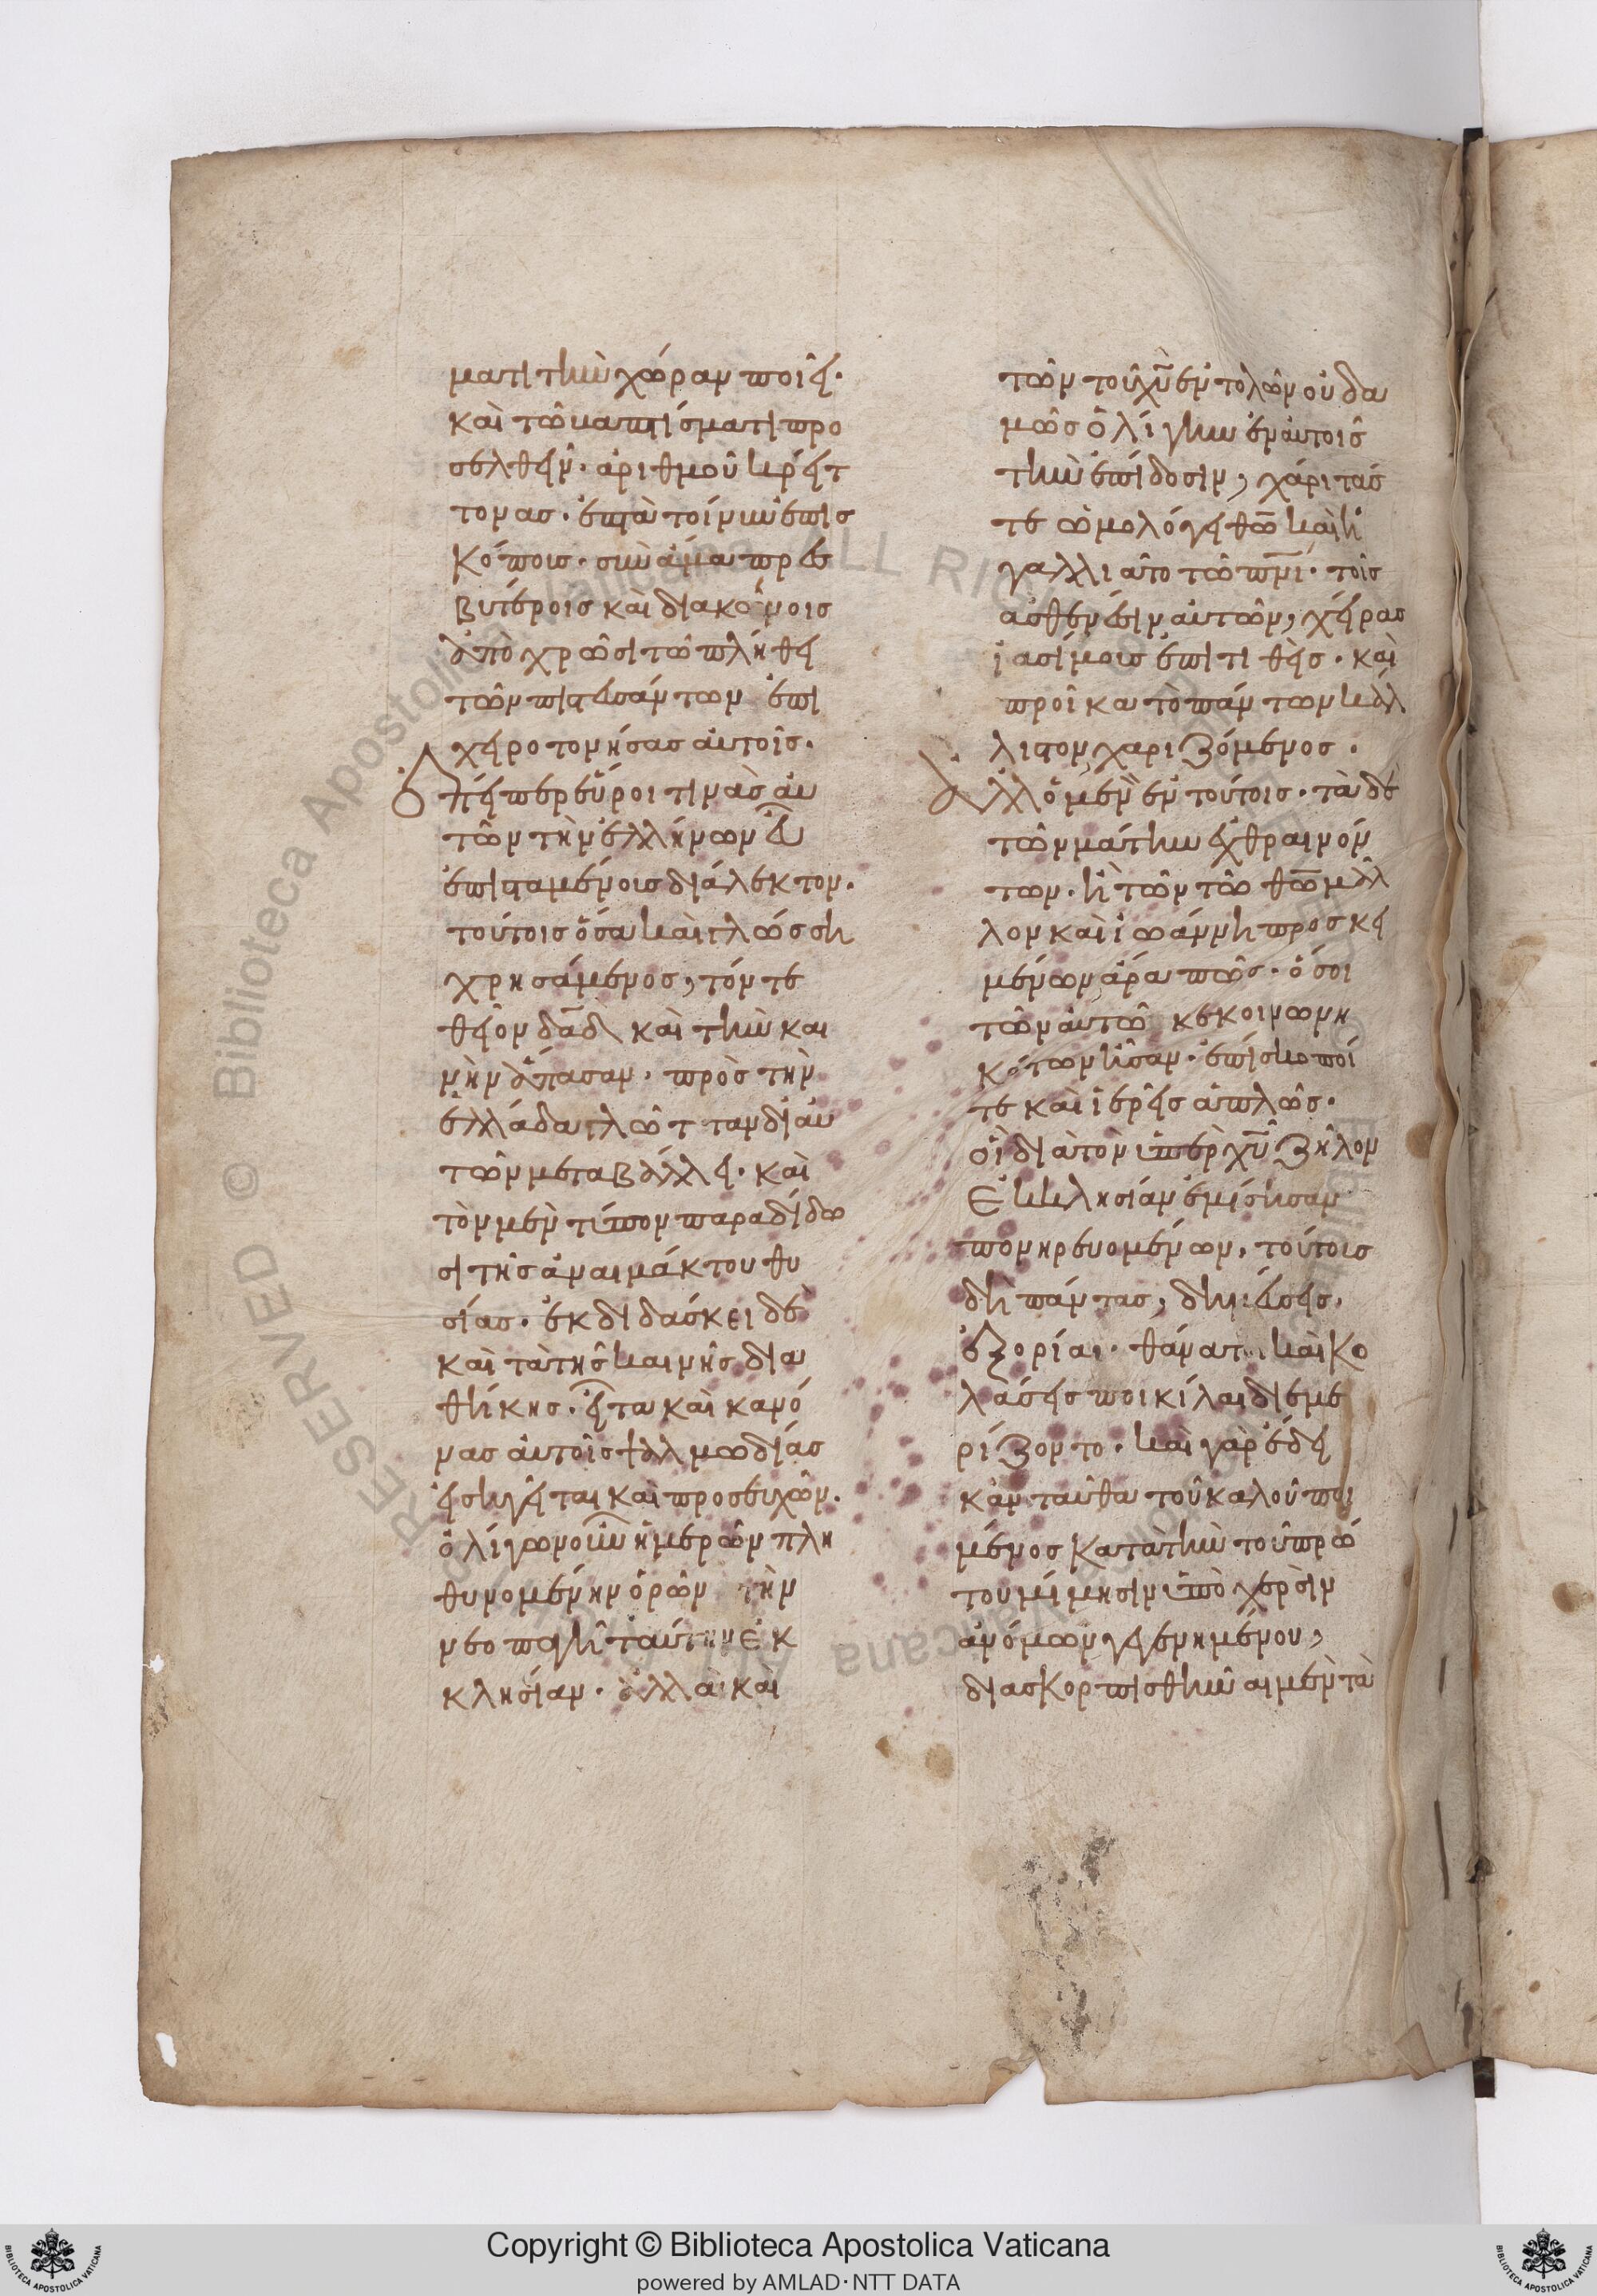 ματι τὴν χώραν ποιεῖ·
καὶ τῶ βαπτίσματι προ
σελθεῖν· ἀριθμοῦ κρείτ
τονας· ἑπτὰ τοίνυν ἐπισ
κόποις· σὺν ἅμα πρεσ
βυτέροις καὶ διακόνοις
ἀπὸ χρῶσι τῶ πλήθει
τῶν πιστευσάντων ἐπι
χειροτονήσας αὐτοῖς·
Ἅπείπερ εὕροι τινὰς αὐ
τῶν τὴν ἑλλήνων εὖ
ἐπισταμένοις διάλεκτον·
τούτοις ὅσα καὶ γλώσση
χρησάμενος, τόν τε
θεῖον δαδ καὶ τὴν και
νὴν ἅπασαν· πρὸς τὴν
ἑλλάδα γλῶτταν δι' αὐ
τῶν μεταβάλλει· καὶ
τὸν μὲν τύπον παραδίδω
σι τῆς ἀναιμάκτου θυ
σίας· ἐκδιδάσκει δὲ
καὶ τὰ τῆς καινῆς δια
θήκης· εἶτα καὶ κανό
νας αὐτοῖς ψαλμωδίας
εἰσηγεῖται καὶ προσευχῶν·
ὀλίγων οὖν ἡμερῶν πλη
θυνομένην ὁρῶν τὴν
νεοπαγῆ ταύτην ἐκ
κλησίαν· ἀλλὰ καὶ
τῶν τοῦ χυ ἐντολῶν οὐδα
μῶς ὀλίγην ἐν αὐτοῖς
τὴν ἐπίδοσιν, χάριτάς
τε ὡμολόγει θω καὶ ἠ
γαλλιᾶτο τῶ πνι· τοῖς
ἀσθενέσιν αὐτῶν, χεῖρας
ἰασίμοις ἐπιτιθεὶς· καὶ
προῖκα τὸ πάντων κάλ
λιστον χαριζόμενος·
Ἀλλ' ὁ μὲν ἐν τούτοις· τὰ δὲ
τῶν μάτην ἐχθραινόν
των· ἢ τῶν τῶ θω μᾶλ
λον καὶ ἰωάννη προσκει
μένων ἄρα πῶς· ὅσοι
τῶν αὐτῶ κεκοινωνη
κότων ἦσαν· ἐπίσκοποί
τε καὶ ἱερεῖς ἁπλῶς·
οἳ διὰ τὸν ὑπὲρ χυ ζῆλον
Ἐκκλησίαν ἐμίσησαν
πονηρευομένων, τούτοις
δὴ πάντας, δημεύσεις,
ἐξορίαι· θάνατοι καὶ κο
λάσεις ποικίλαι διεμε
ρίζοντο· καὶ γὰρ ἔδει
κἀνταῦθα τοῦ καλοῦ ποι
μένος κατὰ τὴν τοῦ πρώ
του μίμησιν ὑπὸ χερσὶν
ἀνόμων γεγενημένου,
διασκορπισθῆναι μὲν τὰ
Copyright © Biblioteca Apostolica Vaticana
powered by AMLAD·NTT DATA